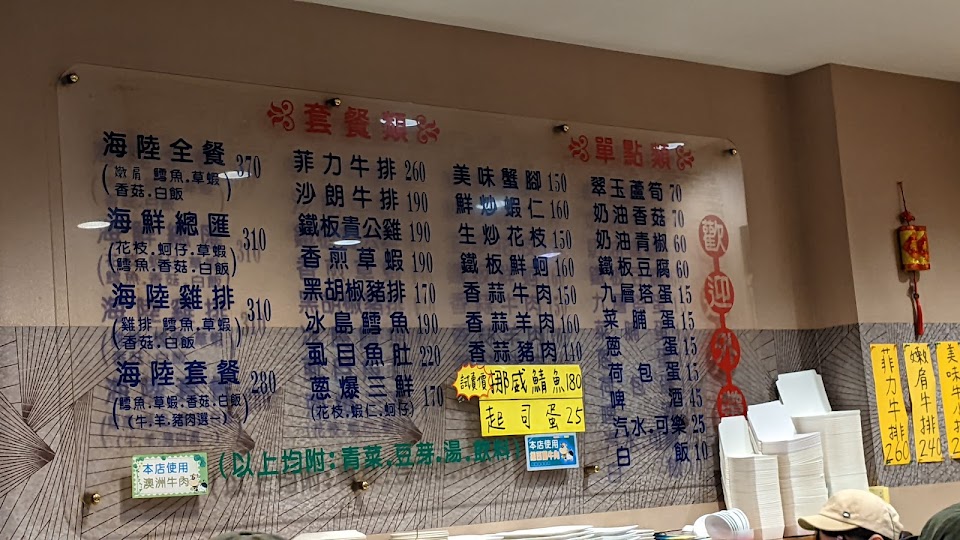 套餐類
海陸全餐 370
(嫩肩.鱈魚.草蝦
香菇.白飯)
海鮮總匯 310
(花枝.蚵仔.草蝦
鱈魚.香菇.白飯)
海陸雞排 310
(雞排.鱈魚.草蝦
香菇.白飯)
海陸套餐 280
(鱈魚.草蝦.香菇.白飯
(牛.羊.豬肉選一)
菲力牛排 260
沙朗牛排 190
鐵板貴公雞 190
香煎草蝦 190
黑胡椒豬排 170
冰島鱈魚 190
虱目魚肚 220
蔥爆三鮮 170
(花枝.蝦仁.蚵仔)
(以上均附:青菜.豆芽.湯.飲料)
單點類
美味蟹腳 150
鮮炒蝦仁 160
生炒花枝 150
鐵板鮮蚵 160
香蒜牛肉 150
香蒜羊肉 160
香蒜豬肉 140
試賣價
挪威鯖魚180
起司蛋25
翠玉蘆筍 70
奶油香菇 70
奶油青椒 60
鐵板豆腐 60
九層塔蛋 15
菜脯蛋 15
蔥蛋 15
荷包蛋 15
啤酒 45
汽水.可樂 25
白飯 10
歡迎外帶
本店使用
澳洲牛肉
本店使用
菲力牛排260
嫩肩牛排240
美味牛